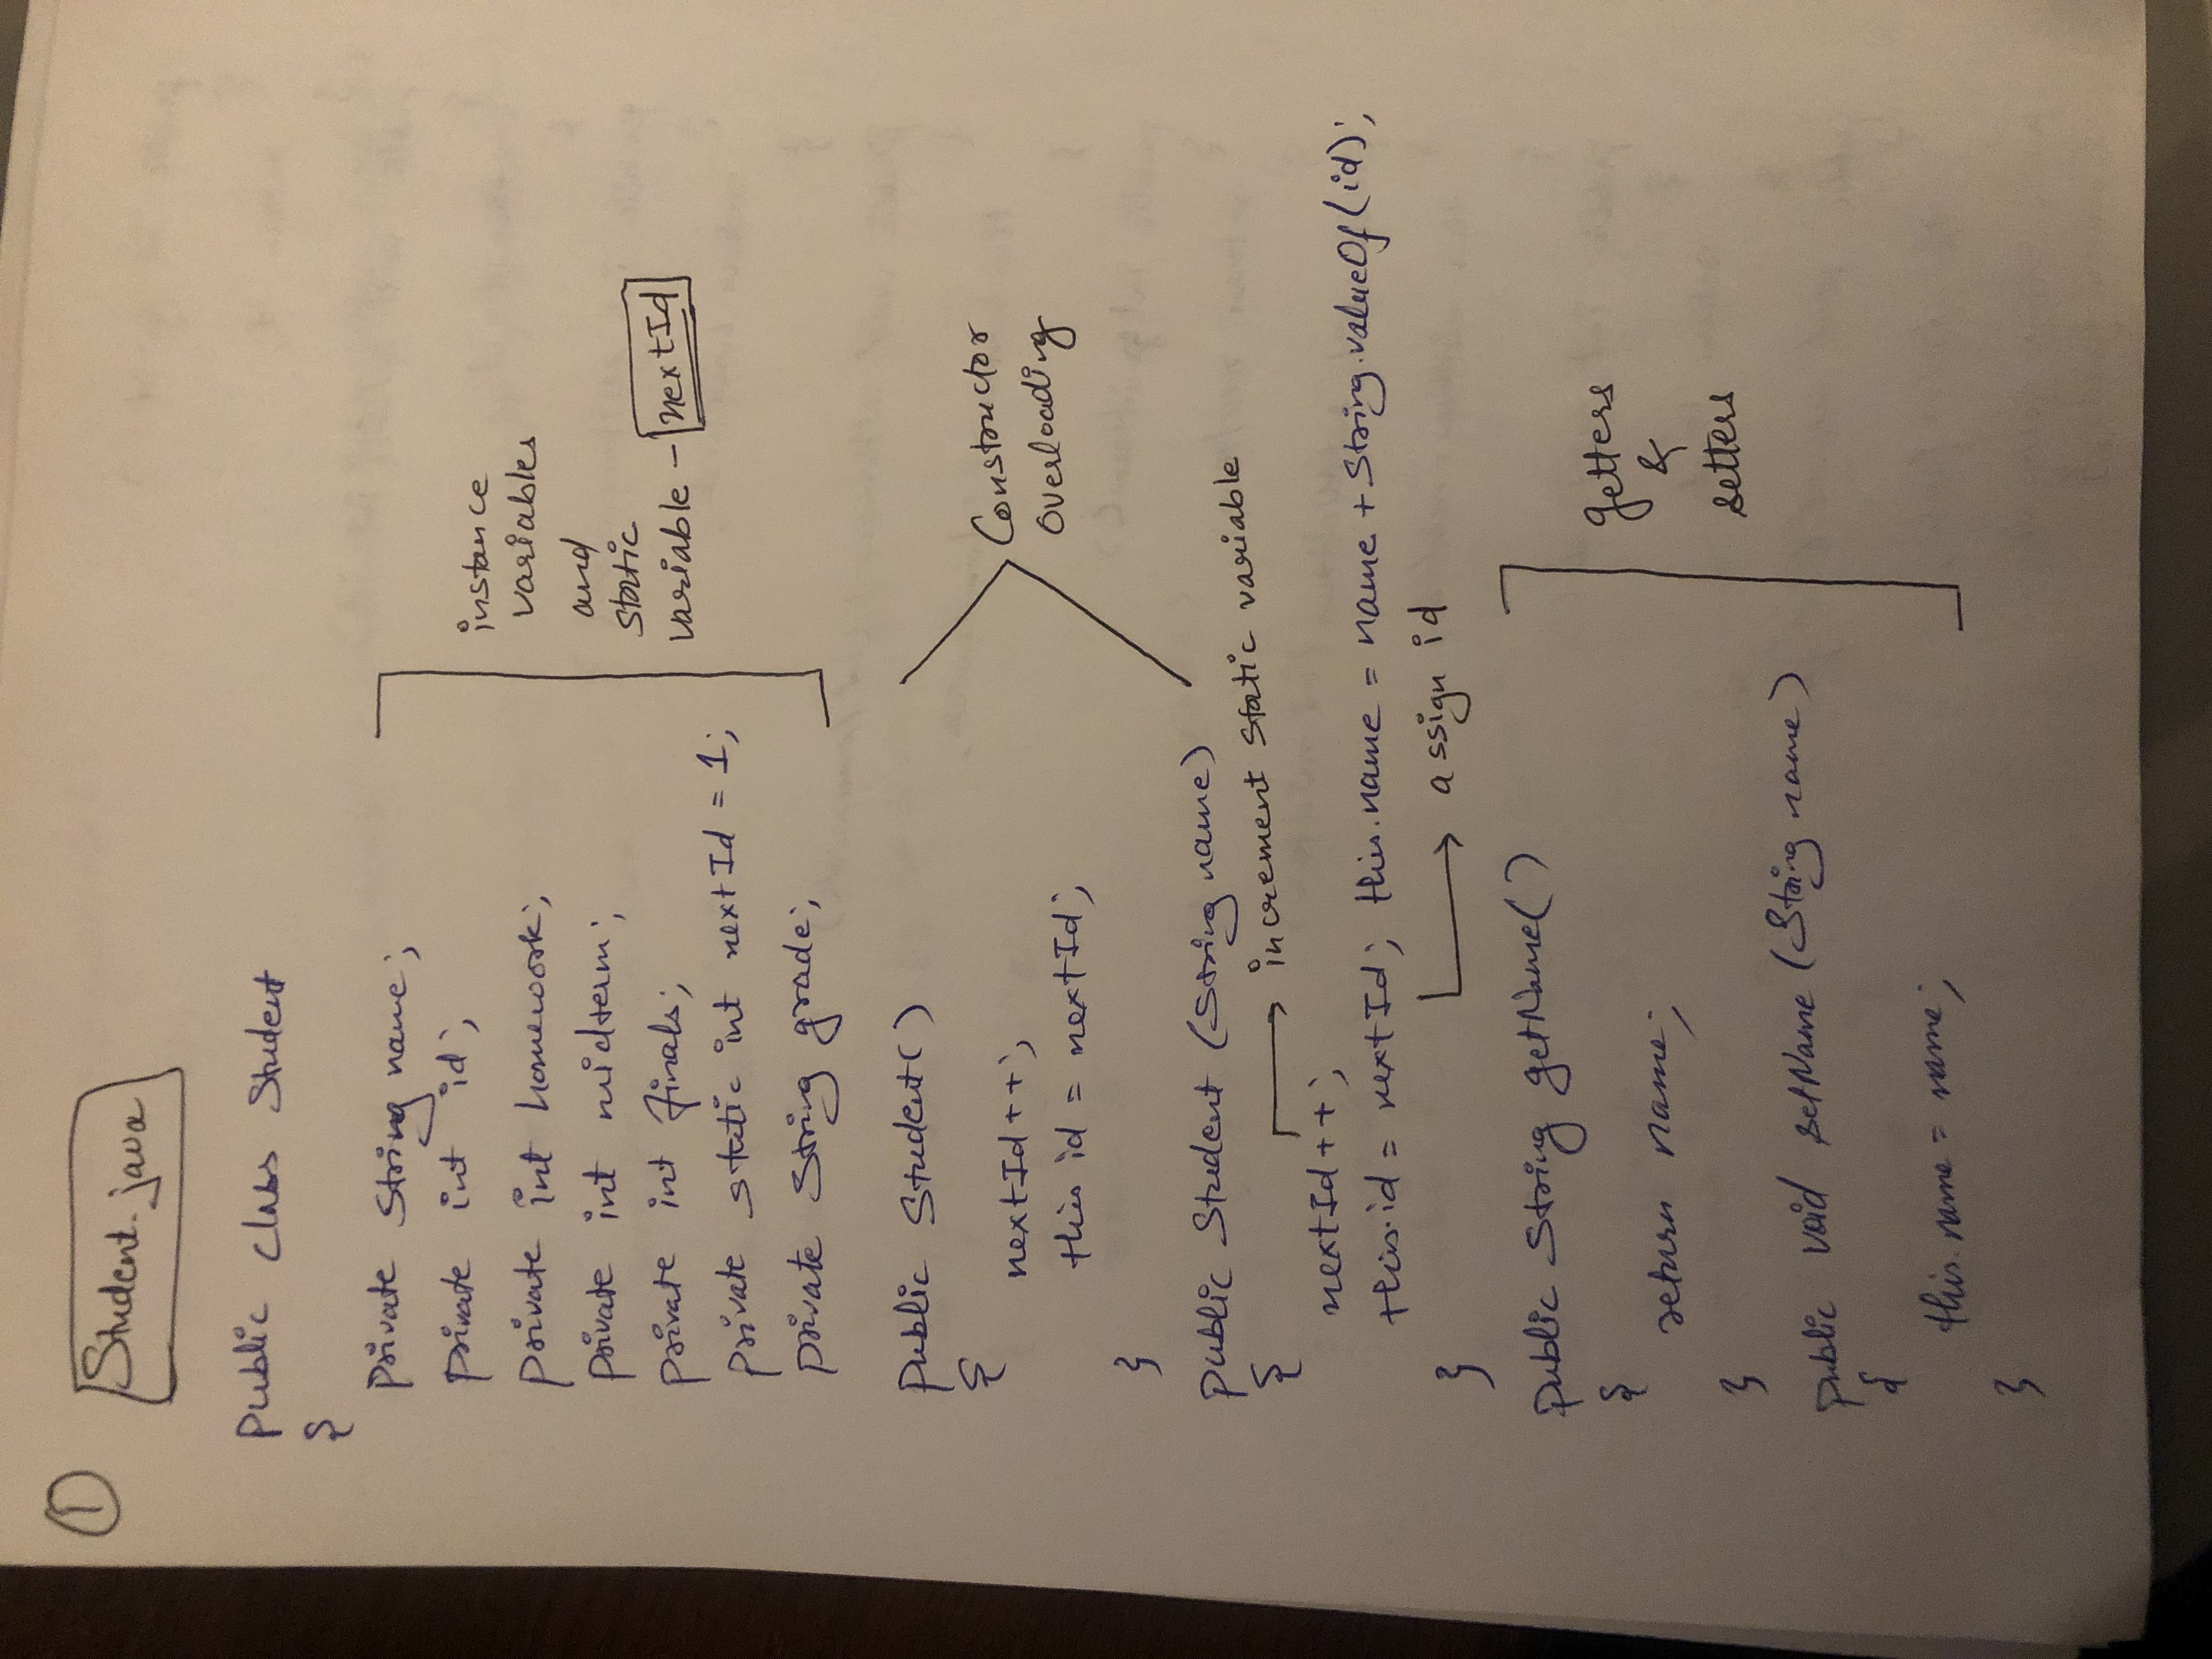 ①
Student.java
public class Student
{
private String name;
private int id;
private int homework;
private int midterm;
private int finals;
private static int nextId = 1;
private String grade;
instance
variables
and
static
variable - nextId
public Student()
{
nextId++;
this id = nextId;
}
Constructor
Overloading
public Student (String name)
{
increment static variable
nextId++;
this.id = nextId; this.name = name + String.valueOf(id);
assign id
}
public String getName()
{
return name;
}
public void setName (String name)
{
this.name = name;
}
getters
&
setters